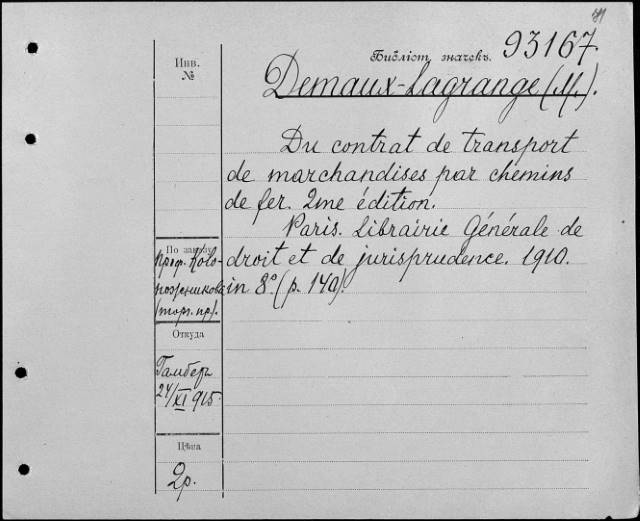 Библіот. значекъ. 93167.
Инв.
№
Demaux-Lagrange (M.).
Du contrat de transport
de marchandises par chemins
de fer. 2me édition.
Paris. Librairie Générale de
droit et de jurisprudence. 1910.
in 8° (p. 140).
По заказу
Проф.
(торг. пр.).
Откуда
Гамберъ
24/XI 915
Цѣна
2р.